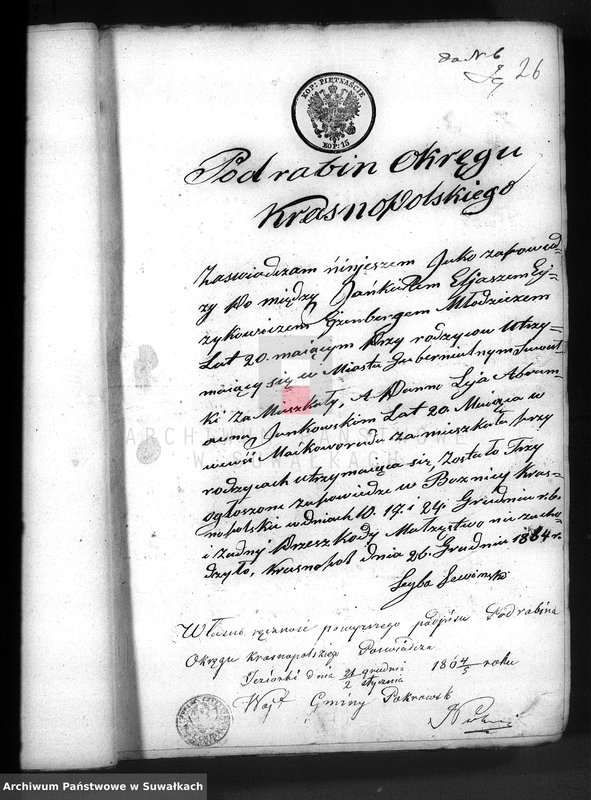 do N 6
26
KOP: PIĘTNAŚCIE
KOP: 15
Podrabin Okręgu
Krasnopolskiego
Zaswiadczam ninjeszem Jako zapowied-
zy Po między Jańkielem Eljaszem Ey-
zykowiczem Młodzieżem
Lat 20. maiącym Przy rodzycow Utrzy-
maiący się w Miasta Gubernialnym Suwał-
ki Za Mieszkały, A Panno Leja Abram-
owną Jankowskim Lat 20. Maiąca w
wewsi Maćkoworuda za mieszkała przy
rodzycach utrzymaiąca się, Zostało Trzy
ogłoszone zapowiedze w Boznicy Kras-
nopolskie w dniach 10. 17. i 24. Grudnia r. b.
i żadny Przeszkody Małzystwo nie zacho-
dzyło, Krasnopol dnia 26. Grudnia 1864 r.
Leyba Lewinski
Własno ręczność powyższego podpisu Podrabina
Okręgu Krasnopolskiego Poswiadcza
Jeziorki dnia 21 grudnia / 2 stycznia 1864/5 roku
Wojt Gminy Pokrowsk
ARCHIWUM PAŃSTWOWE
W SUWAŁKACH
Archiwum Państwowe w Suwałkach